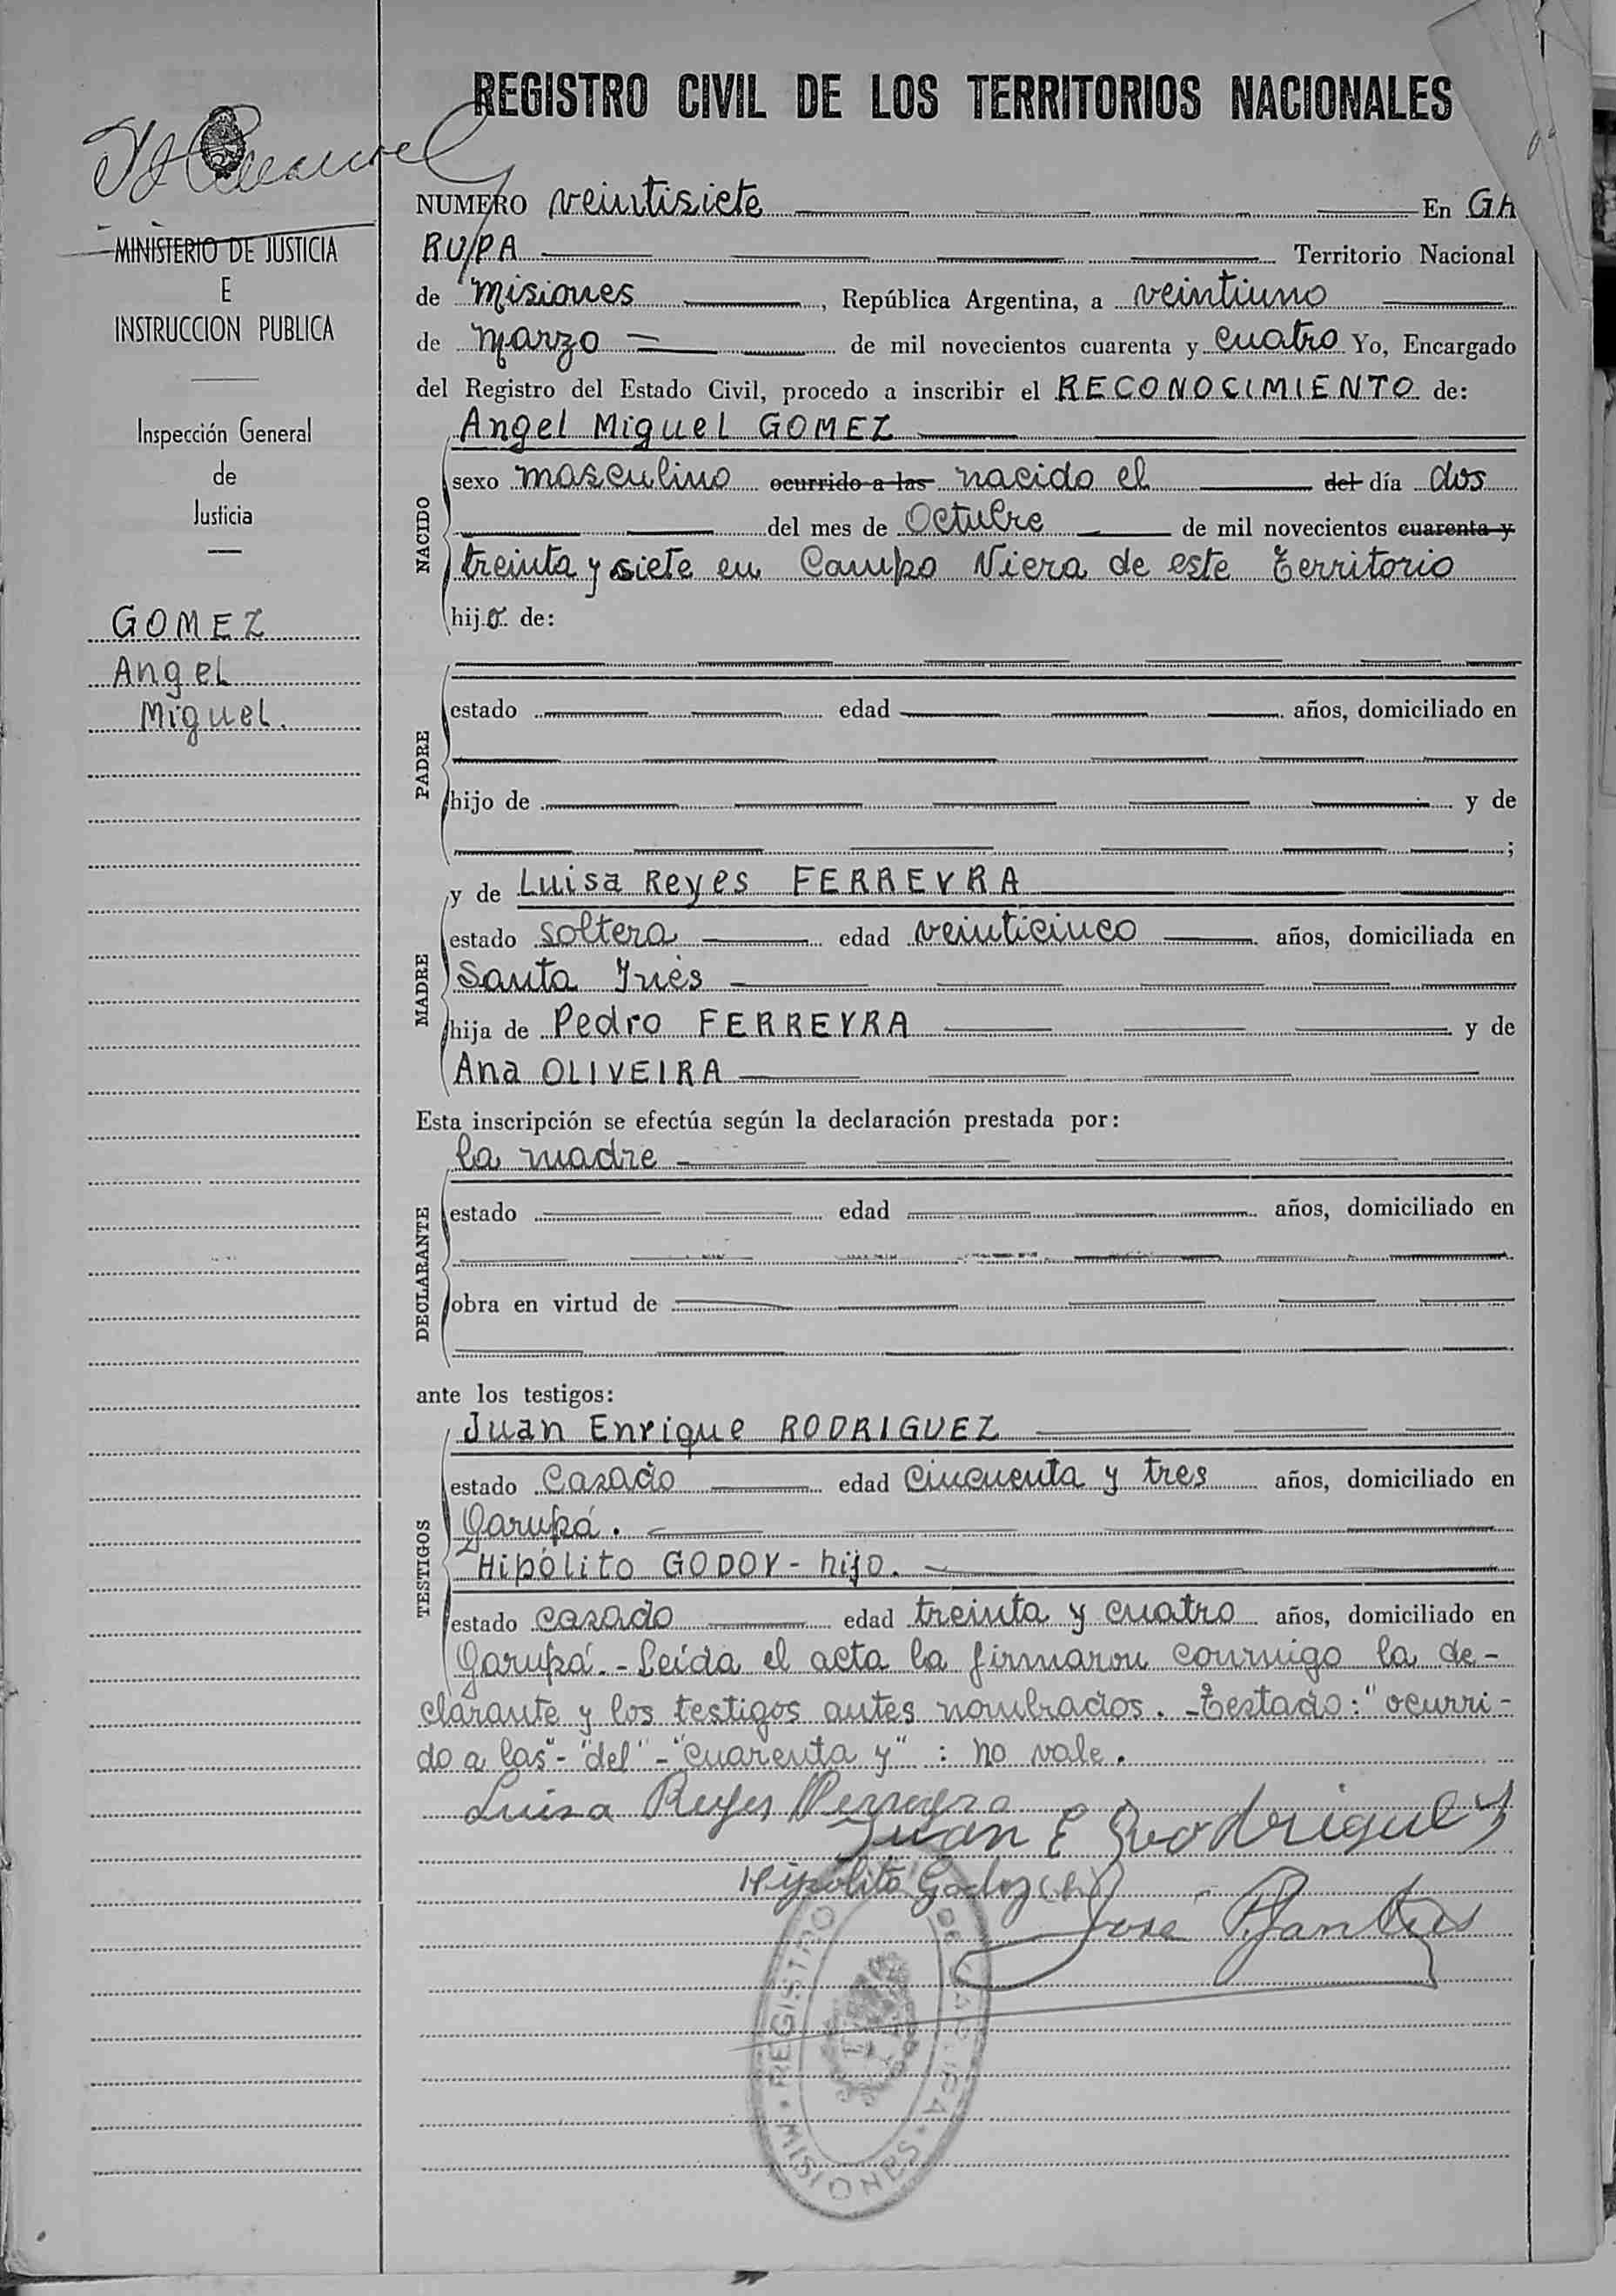 REGISTRO CIVIL DE LOS TERRITORIOS NACIONALES
MINISTERIO DE JUSTICIA
E
INSTRUCCION PUBLICA
Inspección General
de
Justicia
GOMEZ
Angel
Miguel.
NUMERO veintisiete En GA
RUPA Territorio Nacional
de misiones, República Argentina, a veintiuno
de marzo de mil novecientos cuarenta y cuatro Yo, Encargado
del Registro del Estado Civil, procedo a inscribir el RECONOCIMIENTO de:
Angel Miguel GOMEZ
NACIDO
sexo masculino ocurrido a las nacido el del día dos
del mes de Octubre de mil novecientos cuarenta y
treinta y siete en Campo Viera de este territorio
hijo de:
PADRE
estado edad años, domiciliado en
hijo de y de
;
MADRE
y de Luisa Reyes FERREYRA
estado soltera edad veinticinco años, domiciliada en
Santa Inés
hija de Pedro FERREYRA y de
Ana OLIVEIRA
Esta inscripción se efectúa según la declaración prestada por:
la madre
DECLARANTE
estado edad años, domiciliado en
obra en virtud de
ante los testigos:
TESTIGOS
Juan Enrique RODRIGUEZ
estado casado edad cincuenta y tres años, domiciliado en
Garupá.
Hipólito GODOY - hijo.
estado casado edad treinta y cuatro años, domiciliado en
Garupá.- Leída el acta la firmaron conmigo la de-
clarante y los testigos antes nombrados.- Testado: "ocurri-
do a las"- "del"- "cuarenta y" : no vale.
Luisa Reyes Ferreyra
Juan E Rodriguez
Hipólito Godoy (h)
José
REGISTRO DE
MISIONES